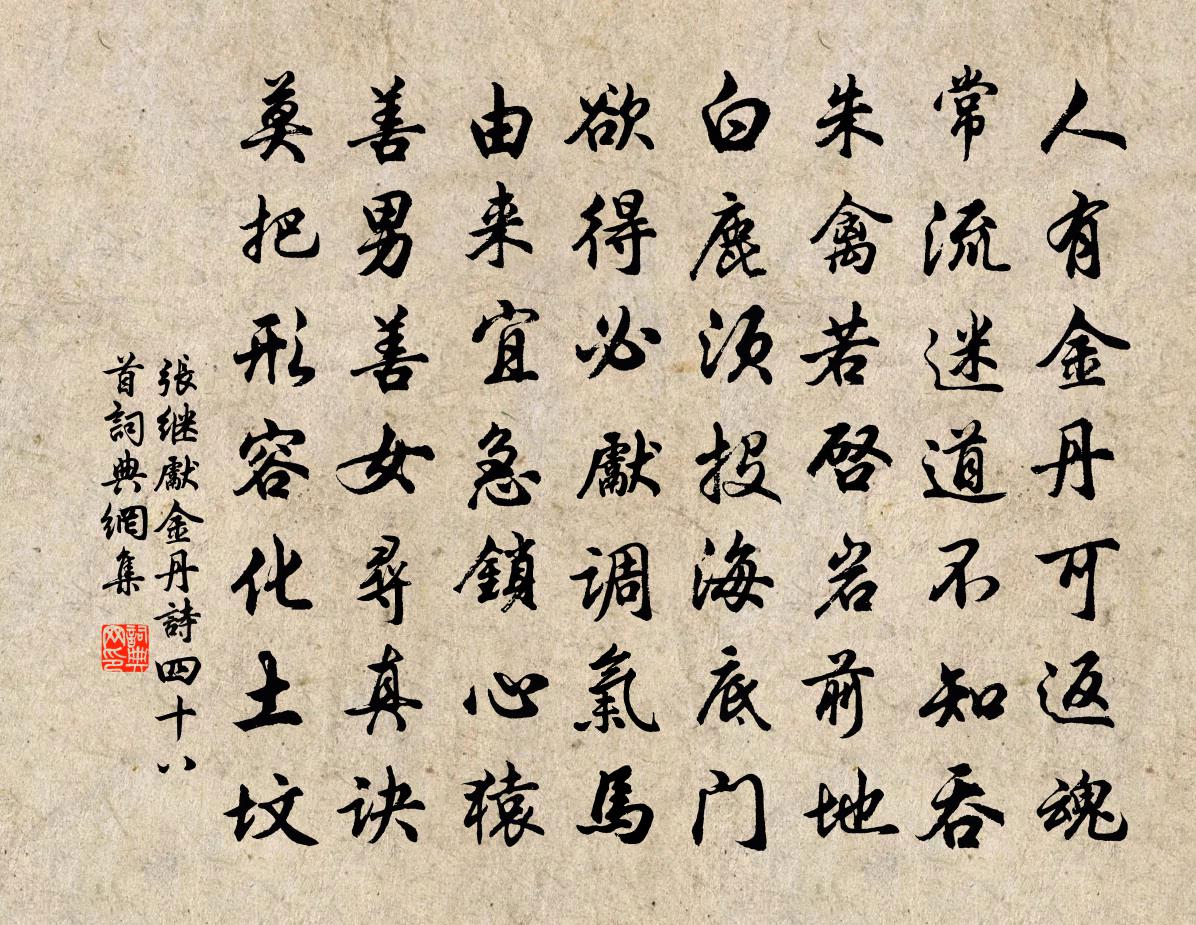 人有金丹可返魂
常流迷道不知吞
朱禽若啓岩前地
白鹿须投海底门
欲得必獻調氣馬
由来宜急鎖心猿
善男善女尋真诀
莫把形容化土坟
張继獻金丹詩四十八
首詞典網集
詞典
网印